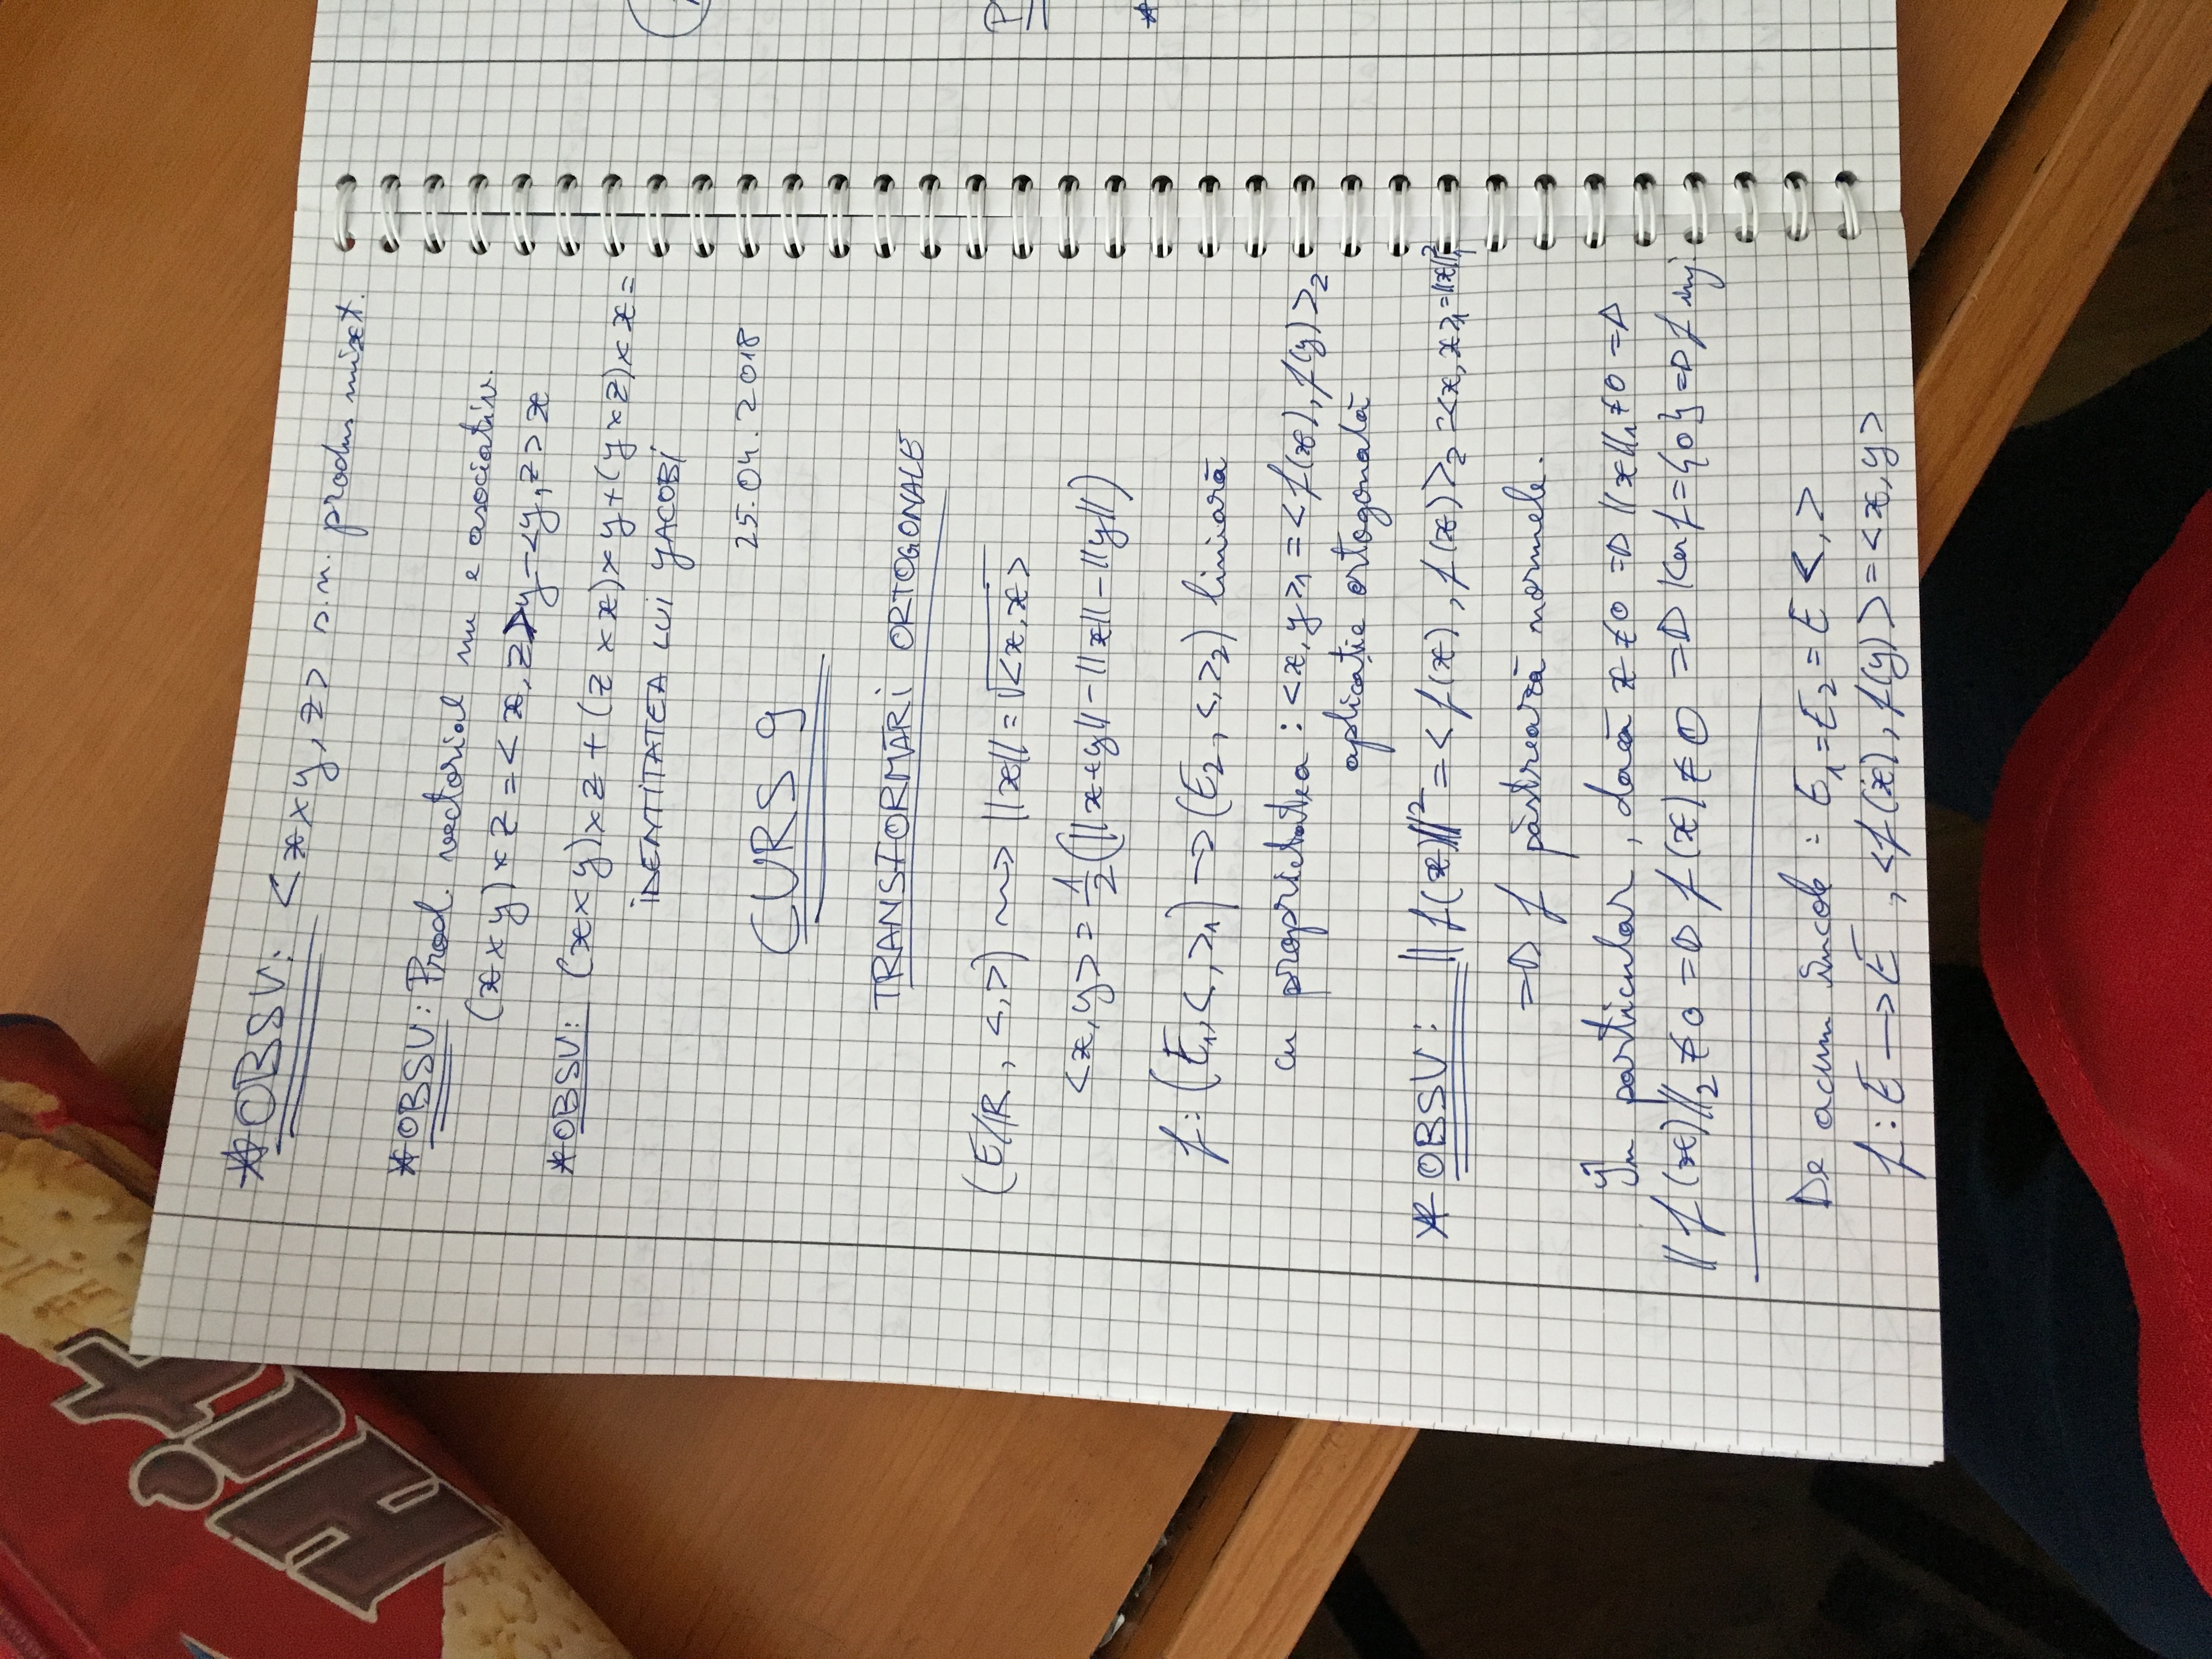 *OBSV: < x×y, z> s.n. produs mixt.
*OBSV: Prod. vectorial nu e asociativ.
(x×y)×z = <x,z>y-<y,z>x
*OBSV: (x×y)×z + (z×x)×y + (y×z)×x =
iDENTITATEA LUI YACOBi
25.04.2018
CURS 9
TRANSFORMĂRi ORTOGONALE
(E/R, <,>) ~> ||x|| = √<x,x>
<x,y> = 1/2(||x+y|| - ||x|| - ||y||)
f: (E₁,<,>₁) → (E₂,<,>₂) liniară
cu proprietatea : <x,y>₁ = <f(x), f(y)>₂
aplicație ortogonală
*OBSV: ||f(x)||² = <f(x), f(x)>₂ = <x,x>₁ = ||x||₁²
=> f păstrează normele.
În particular, dacă x≠0 => ||x||₁ ≠0 =>
||f(x)||₂ ≠0 => f(x)≠0 => Ker f = {0} => f inj.
De acum încolo : E₁=E₂=E <,>
f: E → E , <f(x), f(y)> = <x,y>
P
*
Hit